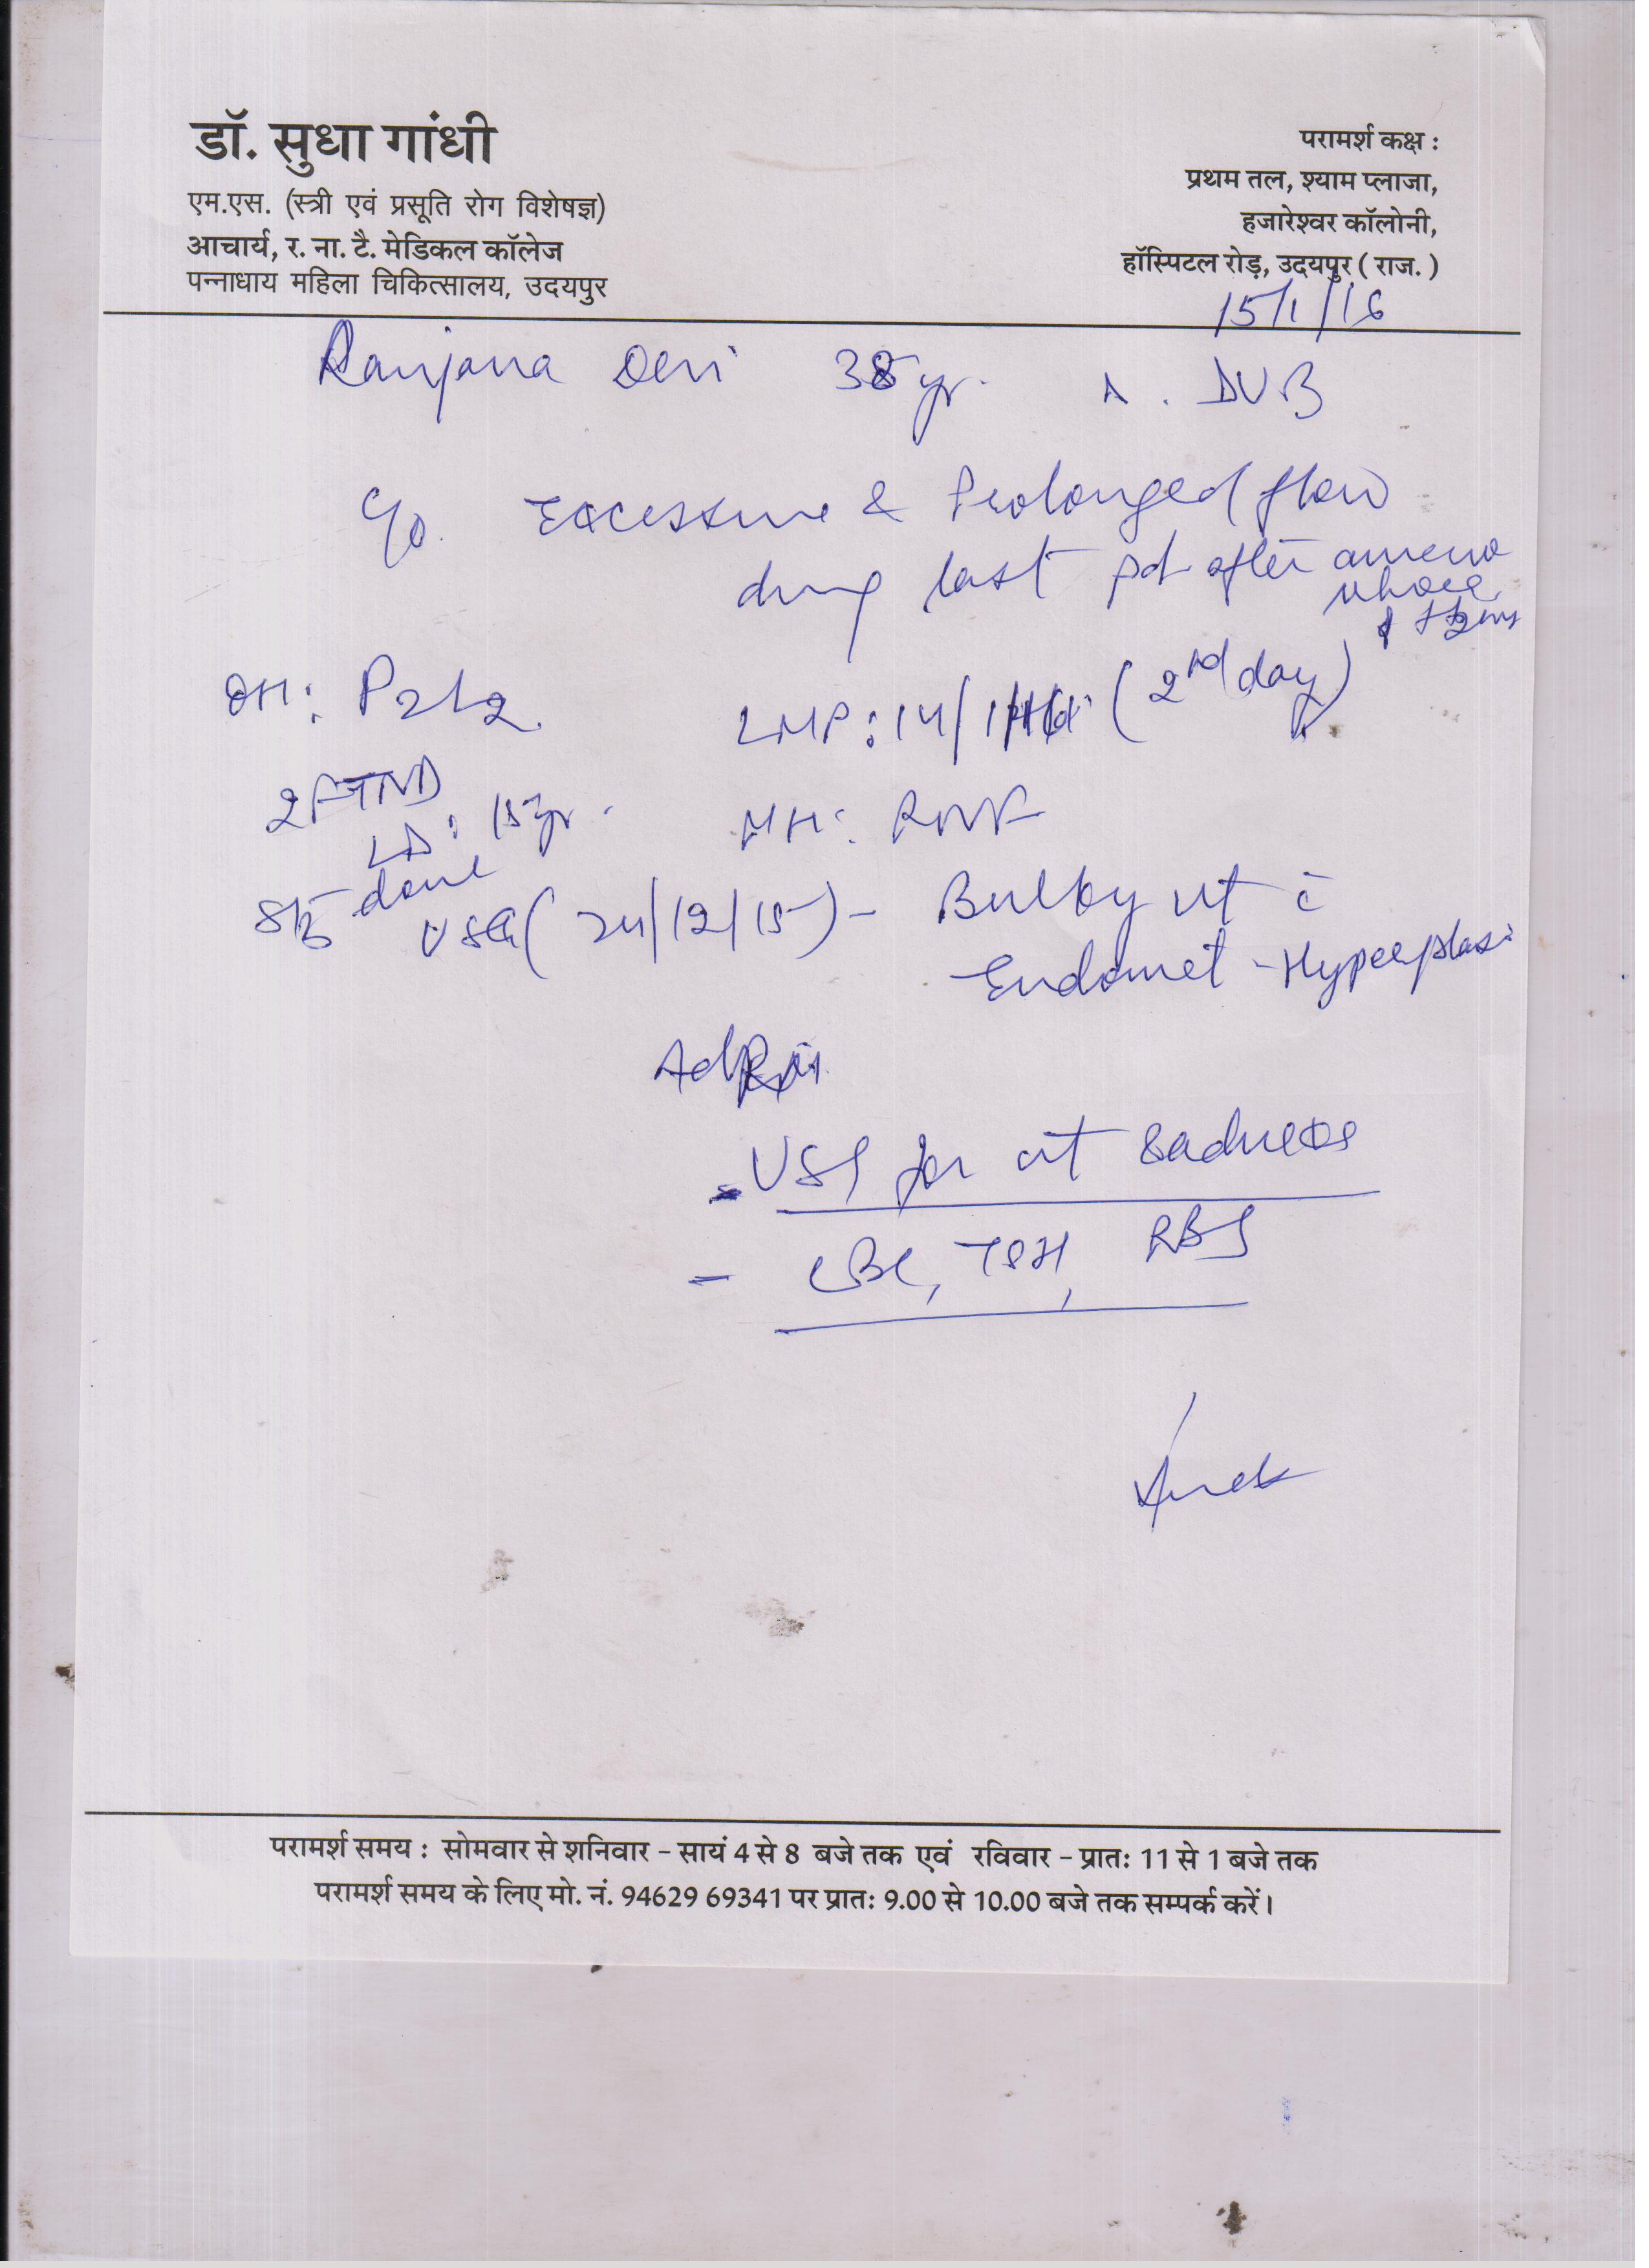 डॉ. सुधा गांधी
एम.एस. (स्त्री एवं प्रसूति रोग विशेषज्ञ)
आचार्य, र. ना. टै. मेडिकल कॉलेज
पन्नाधाय महिला चिकित्सालय, उदयपुर
परामर्श कक्ष :
प्रथम तल, श्याम प्लाजा,
हजारेश्वर कॉलोनी,
हॉस्पिटल रोड़, उदयपुर ( राज. )
15/1/16
Ranjana Devi 38 yr. DUB
c/o. Excessive & Prolonged flow
during last pd after
OH: P2L2
LMP: 14/1 (2nd day)
2 FTND
LD: 15 yr.
MH:
done
USG (24/12/15) - Bulky ut c̄
Endomet - Hyperplasi
Adv
- USG for
- CBC, TSH, RBS
परामर्श समय : सोमवार से शनिवार - सायं 4 से 8 बजे तक एवं रविवार - प्रातः 11 से 1 बजे तक
परामर्श समय के लिए मो. नं. 94629 69341 पर प्रातः 9.00 से 10.00 बजे तक सम्पर्क करें।